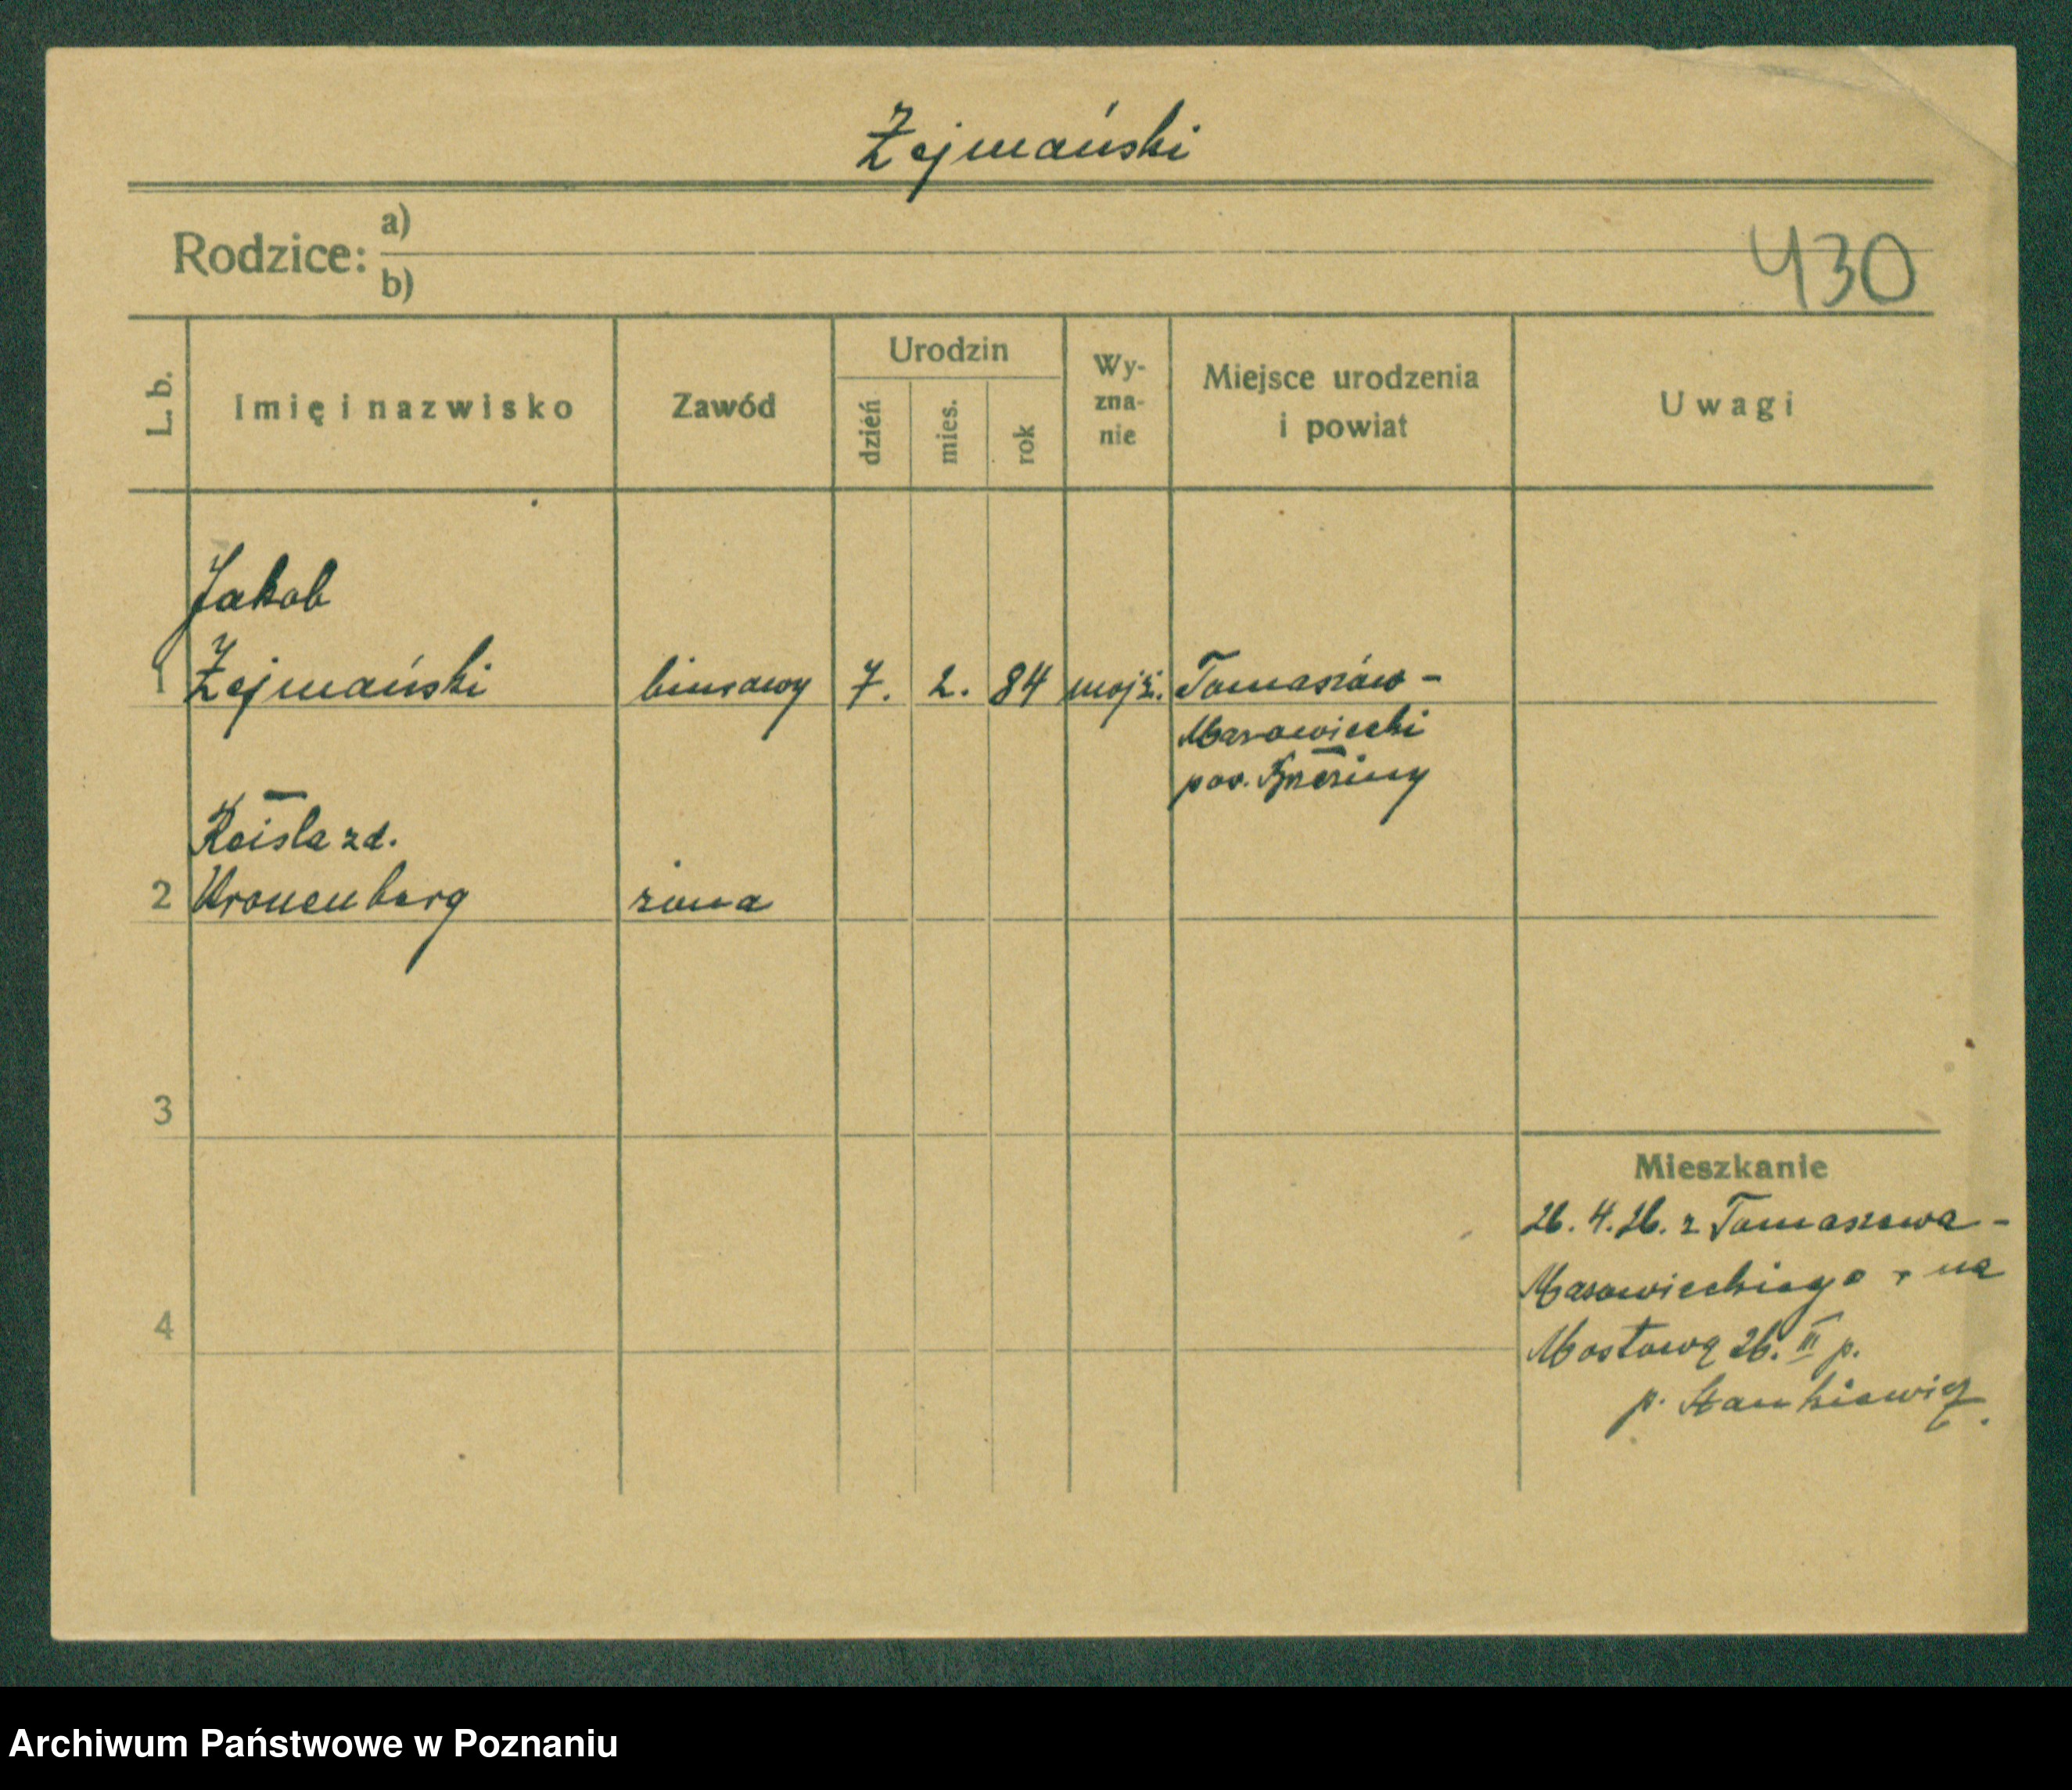 Żejmański
Rodzice: a)
b)
430
L. b.
Imię i nazwisko
Zawód
Urodzin
dzień
mies.
rok
Wy-
zna-
nie
Miejsce urodzenia
i powiat
Uwagi
Jakob
1 Żejmański biurowy 7. 2. 84 mojż. Tomaszów -
Mazowiecki
pow. Brzeziny
Rojsla zd.
2 Kronenberg żona
3
Mieszkanie
26. 4. 26. z Tomaszowa -
Mazowieckiego na
4
Mostową 26. III p.
p. Stankiewicz.
Archiwum Państwowe w Poznaniu